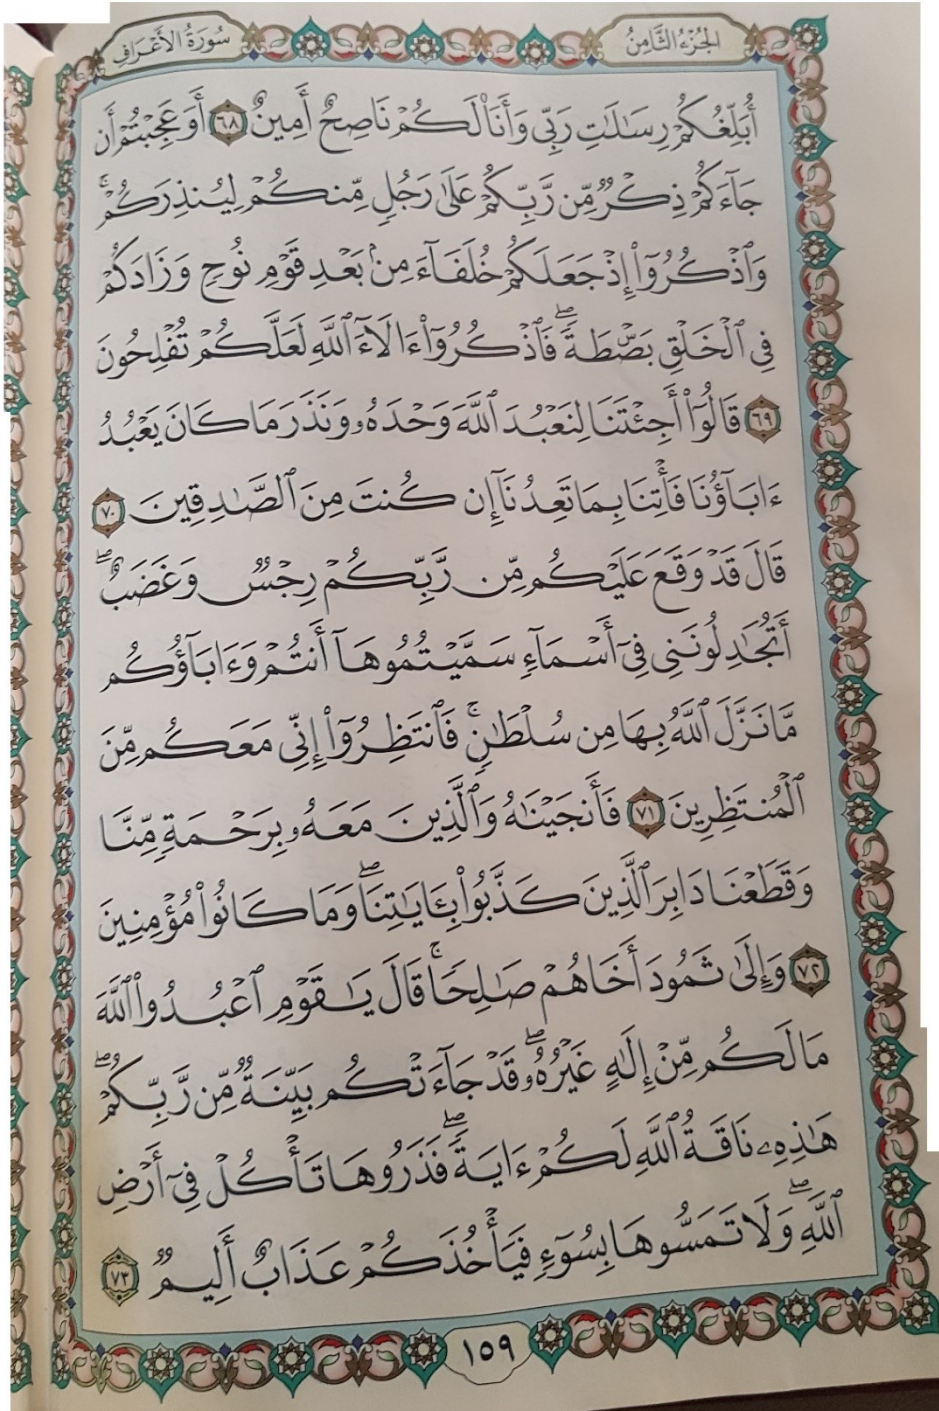 الجُزْءُ الثَّامِنُ
سُورَةُ الأَعْرَافِ
أُبَلِّغُكُمْ رِسَٰلَٰتِ رَبِّى وَأَنَا۠ لَكُمْ نَاصِحٌ أَمِينٌ ٦٨ أَوَعَجِبْتُمْ أَن
جَآءَكُمْ ذِكْرٌ مِّن رَّبِّكُمْ عَلَىٰ رَجُلٍ مِّنكُمْ لِيُنذِرَكُمْ ۚ
وَٱذْكُرُوٓا۟ إِذْ جَعَلَكُمْ خُلَفَآءَ مِنۢ بَعْدِ قَوْمِ نُوحٍ وَزَادَكُمْ
فِى ٱلْخَلْقِ بَصْۜطَةً ۖ فَٱذْكُرُوٓا۟ ءَالَآءَ ٱللَّهِ لَعَلَّكُمْ تُفْلِحُونَ
٦٩ قَالُوٓا۟ أَجِئْتَنَا لِنَعْبُدَ ٱللَّهَ وَحْدَهُۥ وَنَذَرَ مَا كَانَ يَعْبُدُ
ءَابَآؤُنَا فَأْتِنَا بِمَا تَعِدُنَآ إِن كُنتَ مِنَ ٱلصَّٰدِقِينَ ٧٠
قَالَ قَدْ وَقَعَ عَلَيْكُم مِّن رَّبِّكُمْ رِجْسٌ وَغَضَبٌ ۖ
أَتُجَٰدِلُونَنِى فِىٓ أَسْمَآءٍ سَمَّيْتُمُوهَآ أَنتُمْ وَءَابَآؤُكُم
مَّا نَزَّلَ ٱللَّهُ بِهَا مِن سُلْطَٰنٍ ۚ فَٱنتَظِرُوٓا۟ إِنِّى مَعَكُم مِّنَ
ٱلْمُنتَظِرِينَ ٧١ فَأَنجَيْنَٰهُ وَٱلَّذِينَ مَعَهُۥ بِرَحْمَةٍ مِّنَّا
وَقَطَعْنَا دَابِرَ ٱلَّذِينَ كَذَّبُوا۟ بِـَٔايَٰتِنَا ۖ وَمَا كَانُوا۟ مُؤْمِنِينَ
٧٢ وَإِلَىٰ ثَمُودَ أَخَاهُمْ صَٰلِحًا ۚ قَالَ يَٰقَوْمِ ٱعْبُدُوا۟ ٱللَّهَ
مَا لَكُم مِّنْ إِلَٰهٍ غَيْرُهُۥ ۖ قَدْ جَآءَتْكُم بَيِّنَةٌ مِّن رَّبِّكُمْ ۖ
هَٰذِهِۦ نَاقَةُ ٱللَّهِ لَكُمْ ءَايَةً ۖ فَذَرُوهَا تَأْكُلْ فِىٓ أَرْضِ
ٱللَّهِ ۖ وَلَا تَمَسُّوهَا بِسُوٓءٍ فَيَأْخُذَكُمْ عَذَابٌ أَلِيمٌ ٧٣
١٥٩